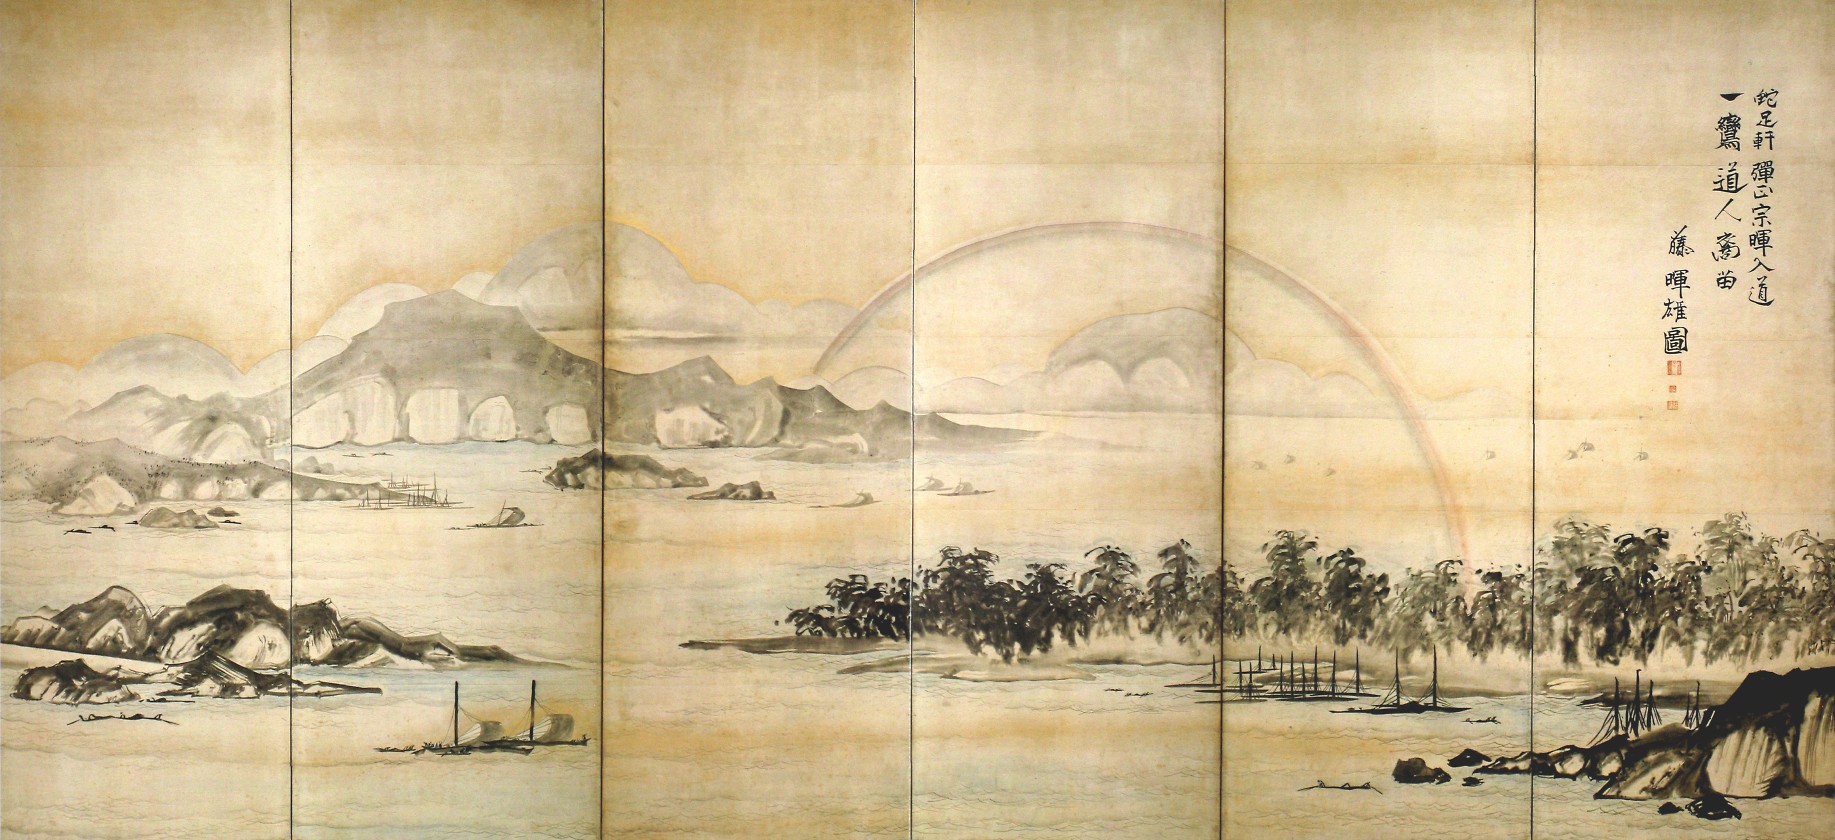 蛇足軒彈正宗暉入道
一鸞道人裔苗
藤暉雄圖